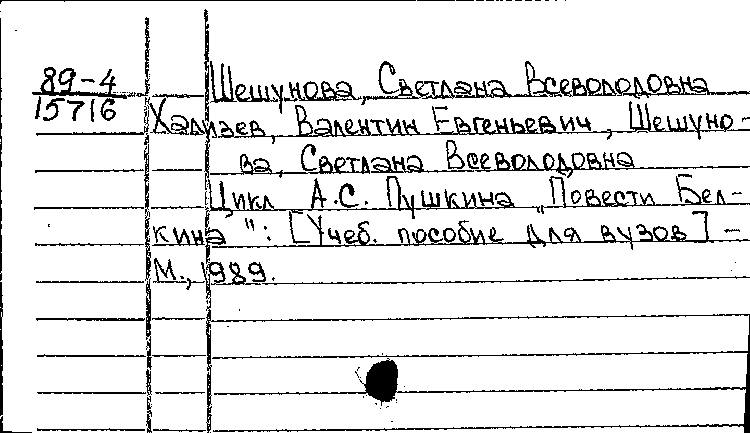 89-4
15716
Шешунова, Светлана Всеволодовна
Хализев, Валентин Евгеньевич, Шешуно-
ва, Светлана Всеволодовна
Цикл А.С. Пушкина „Повести Бел-
кина": [Учеб. пособие для вузов] -
М., 1989.